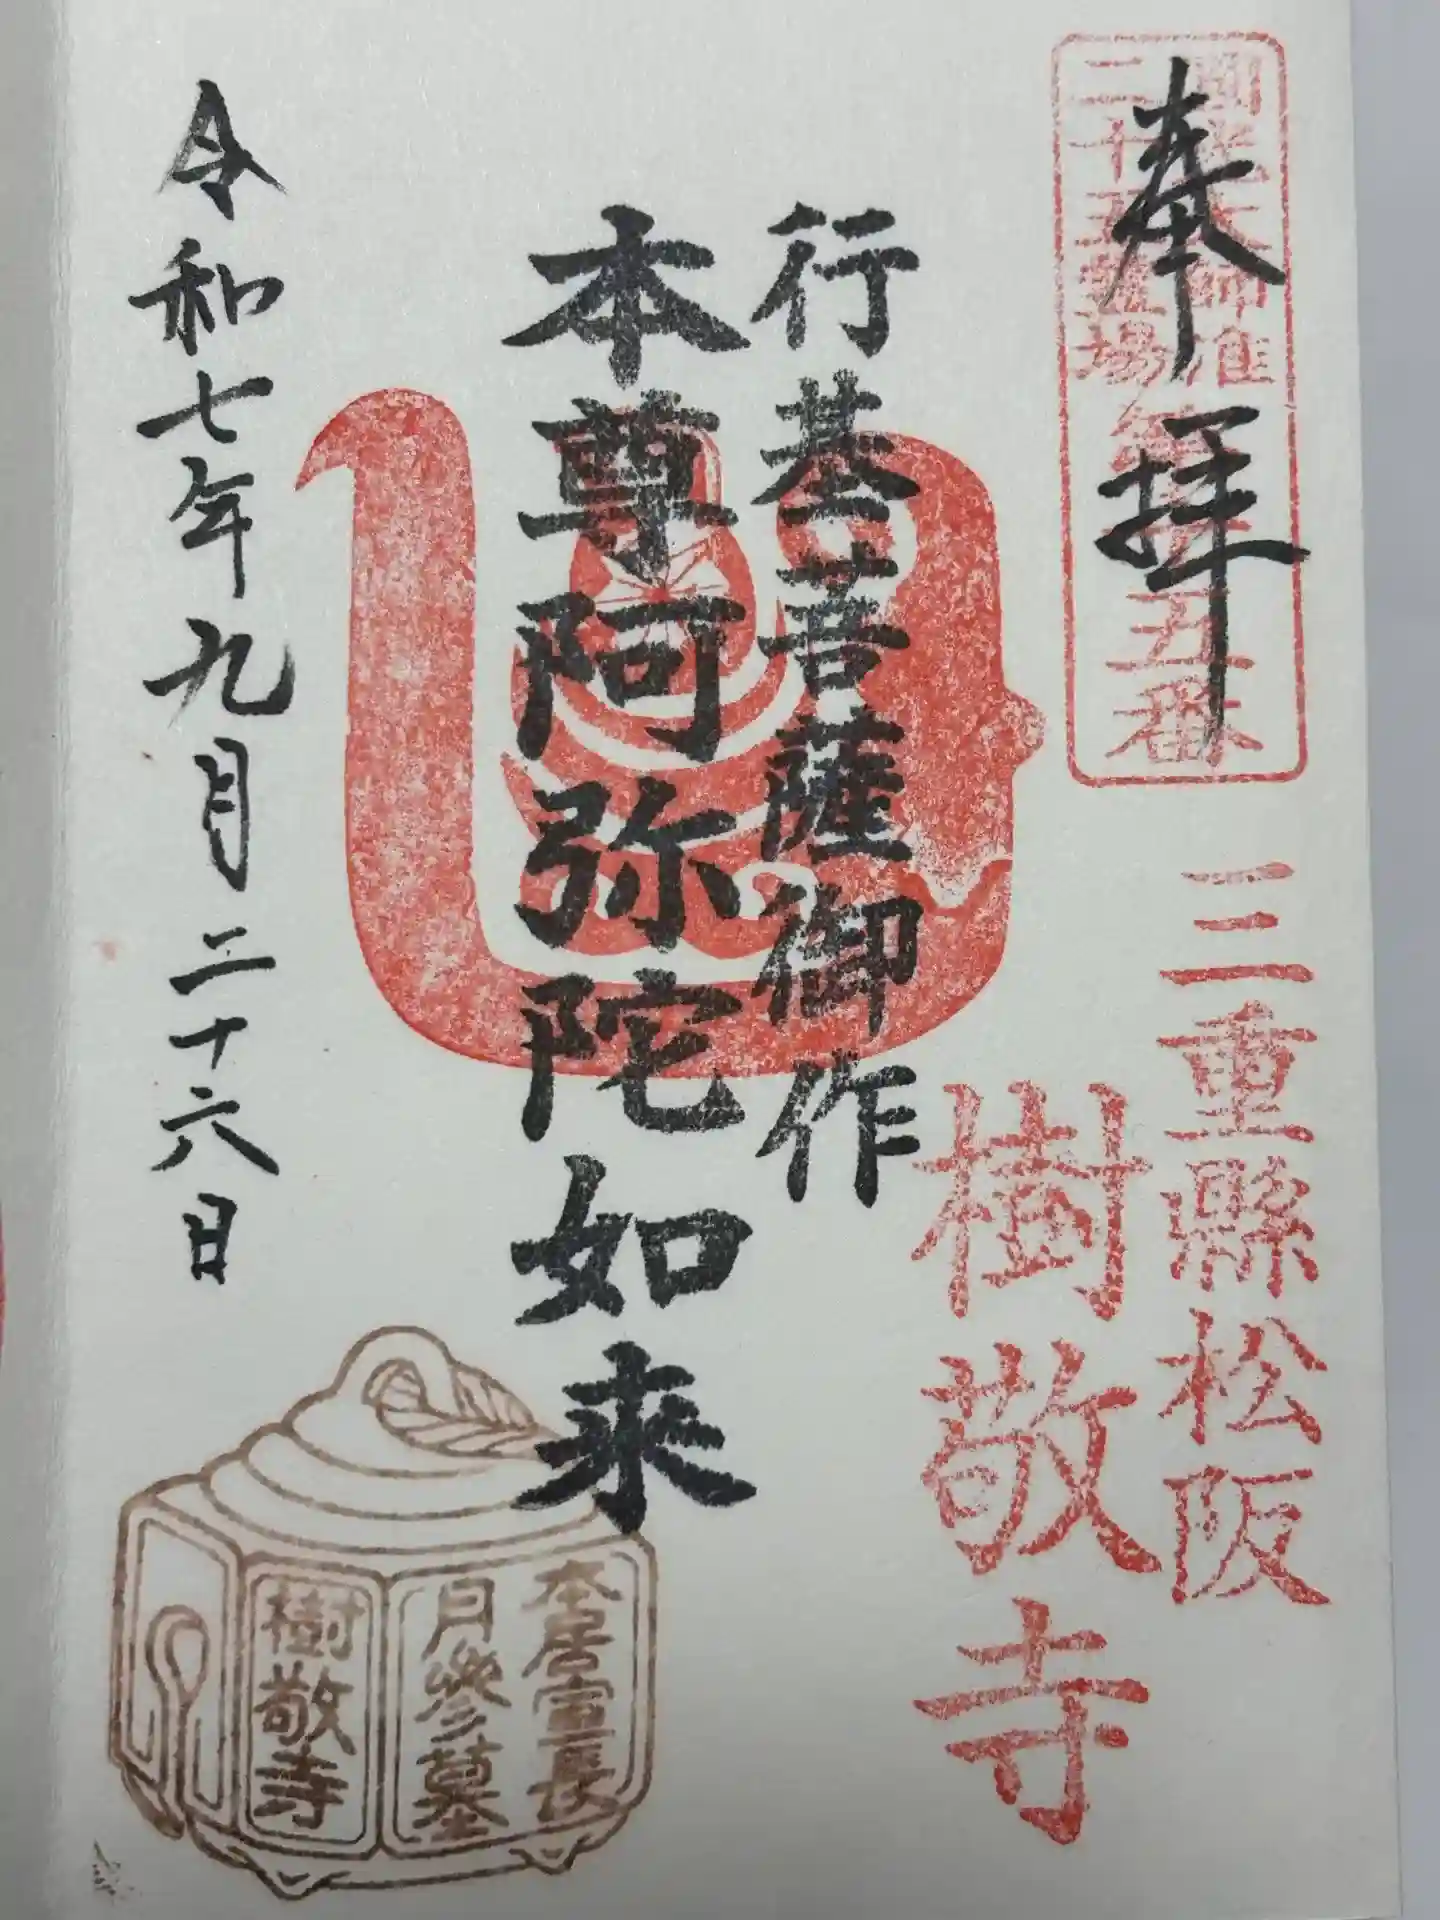 奉拝
圓光大師准
二十五霊場
五番
三重縣松阪
樹敬寺
行基菩薩御作
本尊阿弥陀如来
令和七年九月二十六日
本居宣長
月参墓
樹敬寺